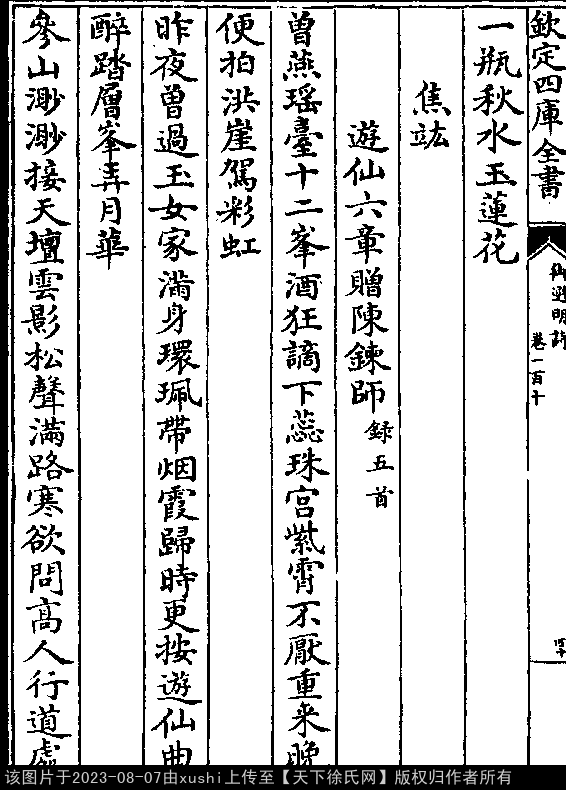 欽定四庫全書
御選明詩
卷一百十
一瓶秋水玉蓮花
焦竑
遊仙六章贈陳鍊師錄五首
曽燕瑶臺十二峯酒狂謫下蕊珠宫紫霄不厭重來晚
便拍洪崖駕彩虹
昨夜曽過玉女家滿身環珮帶烟霞歸時更按遊仙曲
醉踏層峯弄月華
參山渺渺接天壇雲影松聲滿路寒欲問高人行道處
该图片于2023-08-07由xushi上传至【天下徐氏网】版权归作者所有